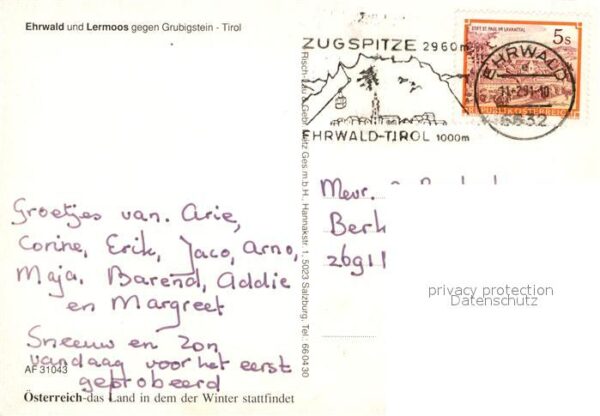 Ehrwald und Lermoos gegen Grubigstein - Tirol
ZUGSPITZE 2960m
EHRWALD-TIROL 1000m
STIFT ST. PAUL IM LAVANTTAL
5s
REPUBLIK ÖSTERREICH
EHRWALD
11-291-10
6632
Risch-Lau & Gebr. Metz Ges.m.b.H., Hannakstr. 1, 5023 Salzburg, Tel.: 660430
Groetjes van. Arie,
Corine, Erik, Jaco, Arno,
Maja, Barend, Addie
en Margreet
Sneeuw en zon
vandaag voor het eerst
geprobeerd
AF 31043
Österreich-das Land in dem der Winter stattfindet
Mevr.
Berk
2691
privacy protection
Datenschutz